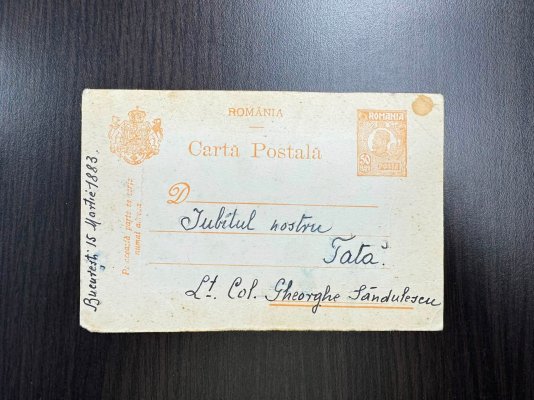 ROMÂNIA
Carta Postală
ROMANIA
50
BANI
D
Iubitul nostru
Tată.
Lt. Col. Gheorghe Săndulescu
București, 15 Martie 1883.
Pe această parte se scrie
numai adresa